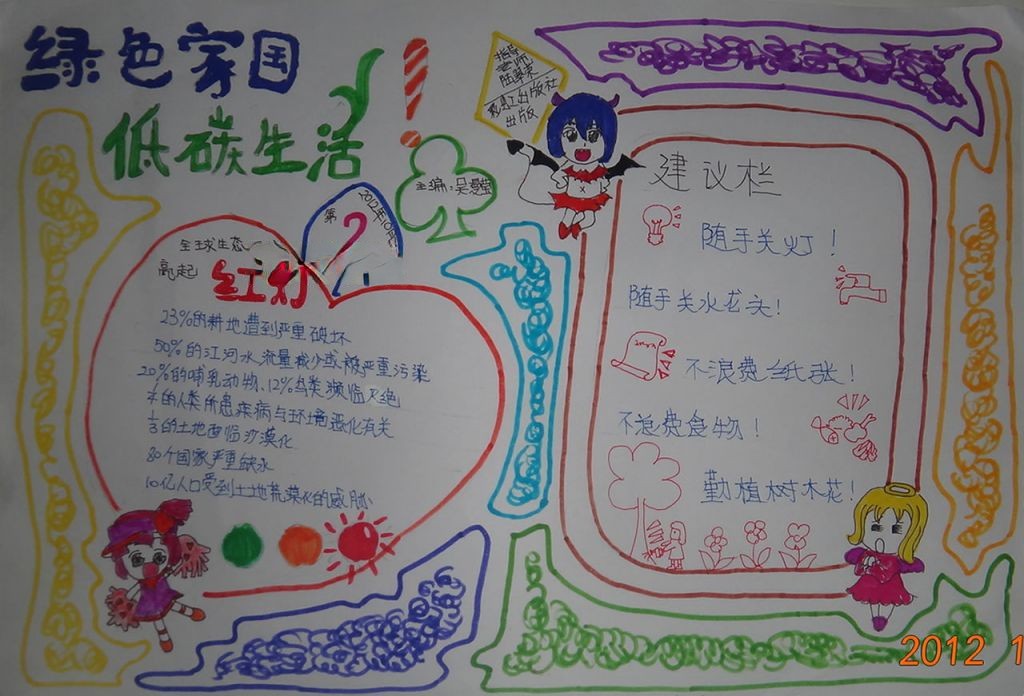 绿色家园
低碳生活
!
指导
老师
出版社
出版
主编:吴
第2
2012年10月
全球生态
亮起
红灯
23%的耕地遭到严重破坏
50%的江河水流量减少或被严重污染
20%的哺乳动物、12%鸟类濒临灭绝
的人类所患疾病与环境恶化有关
的土地面临沙漠化
80个国家严重缺水
10亿人口受到土地荒漠化的威胁
建议栏
随手关灯!
随手关水龙头!
不浪费纸张!
不浪费食物!
勤植树木花!
2012 1